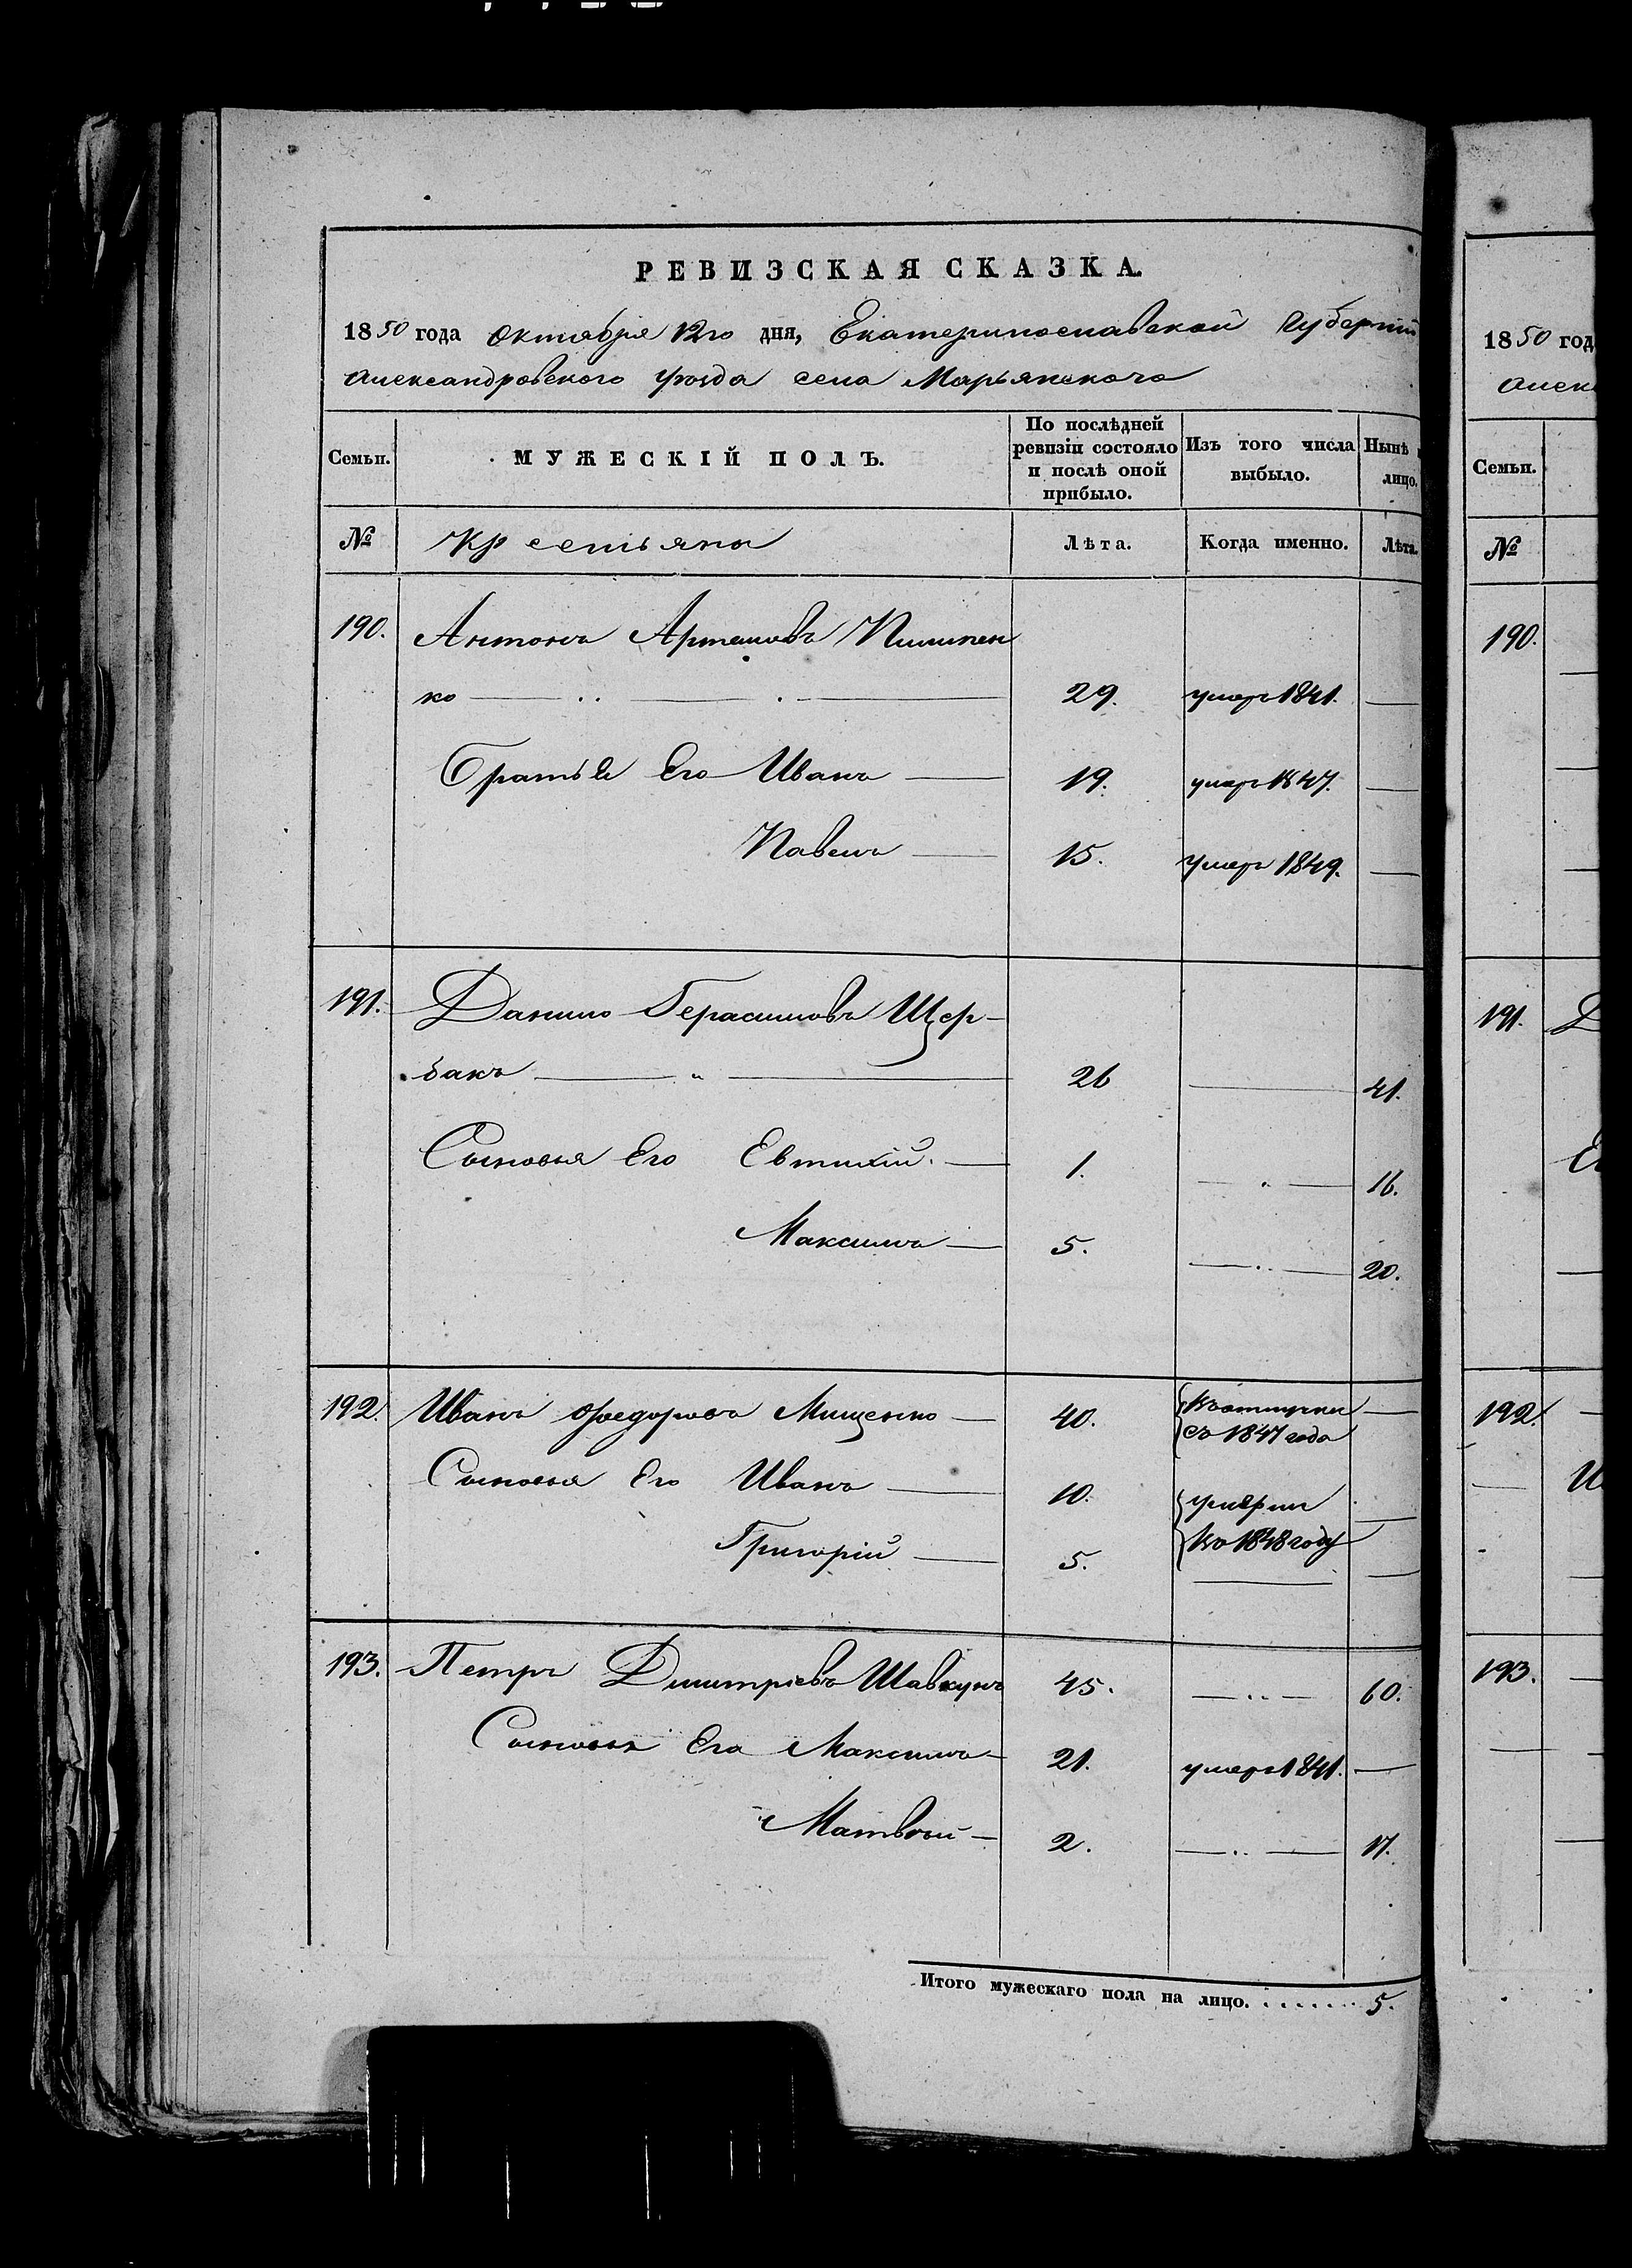 РЕВИЗСКАЯ СКАЗКА.
1850 года Октября 12го дня, Екатеринославской Губерніи
Александровского Уезда села Марьянского
Семьи.
МУЖЕСКІЙ ПОЛЪ.
По послѣдней ревизіи состояло и послѣ оной прибыло.
Изъ того числа выбыло.
Нынѣ лицо.
№ Крестьяна Лѣта. Когда именно. Лѣта.
190. Антонъ Артемовъ Пилипен
ко 29. умеръ 1841. —
Братья Его Иванъ — 19. умеръ 1847. —
Павелъ — 15. умеръ 1849. —
191. Данило Герасимовъ Щер-
бакъ 26 — 41.
Сыновья Его Евтихій. — 1. — 16.
Максимъ — 5. — 20.
192. Иванъ Федоровъ Мищенко — 40. въ отлучки —
съ 1847 года
Сыновья Его Иванъ — 10. умерли —
Григорій — 5. въ 1848 году —
193. Петръ Дмитріевъ Шавкунъ 45. — 60.
Сыновья Его Максимъ — 21. умеръ 1841. —
Матвѣй — 2. — 17.
Итого мужескаго пола на лицо. . . . . . . 5.
1850 год
Алек
Семьи.
№
190.
191. Д
192.
193.